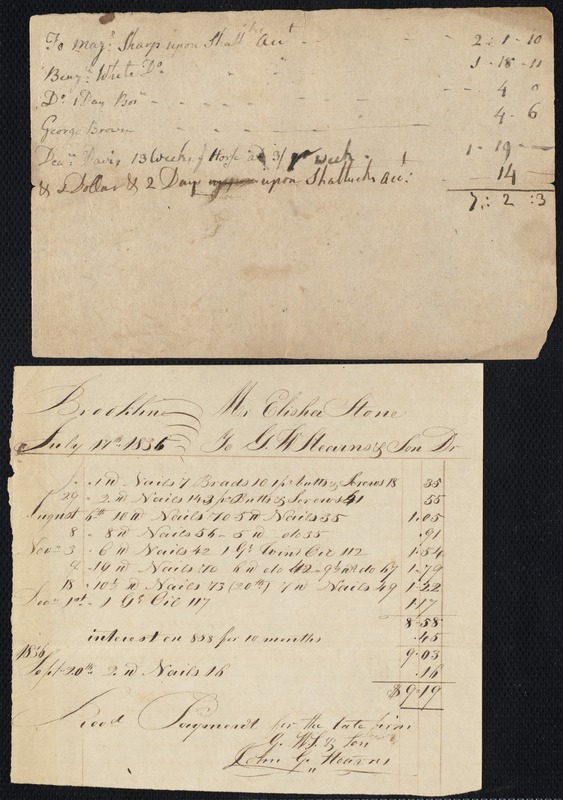 To Majr. Sharp upon Shatt's Acct - - 2 : 1 - 10
Benjn. White Do. - - - 1 - 18 - 11
Do. 1 Day Boy - - - - 4 0
George Brown - - - - 4 - 6
Dean Davis 13 Weeks of Horse at 3/ pr week - 1 - 19 -
& 2 Dollar & 2 Day upon Shattucks acct: - 14 -
7 : 2 : 3
Brookline Mr Elisha Stone
July 17th 1835 To G. W Stearns & Son Dr
1 lb Nails 7 Brads 10 1 pr butts & Screws 18 35
29 - 2 lb Nails 14 3 pr Butts & Screws 41 55
August 6th 10 lb Nails 70 5 lb Nails 35 1.05
8 - 8 lb Nails 56 - 5 lb do 35 .91
Nov. 3 - 6 lb Nails 42 1 Gn Oil 112 1.54
4 - 10 lb Nails 70 6 lb do 42 - 9½ lb do 67 1-79
18 - 10½ lb Nails 73 (20th) 7 lb Nails 49 1-22
1st - 1 Gn Oil 117 1.17
8-58
interest on 858 for 10 months .45
9-03
1836
Sept - 20th - 2 lb Nails 16 .16
$9-19
Recd Payment for the late firm
G. W S. & Son
John G. Stearns